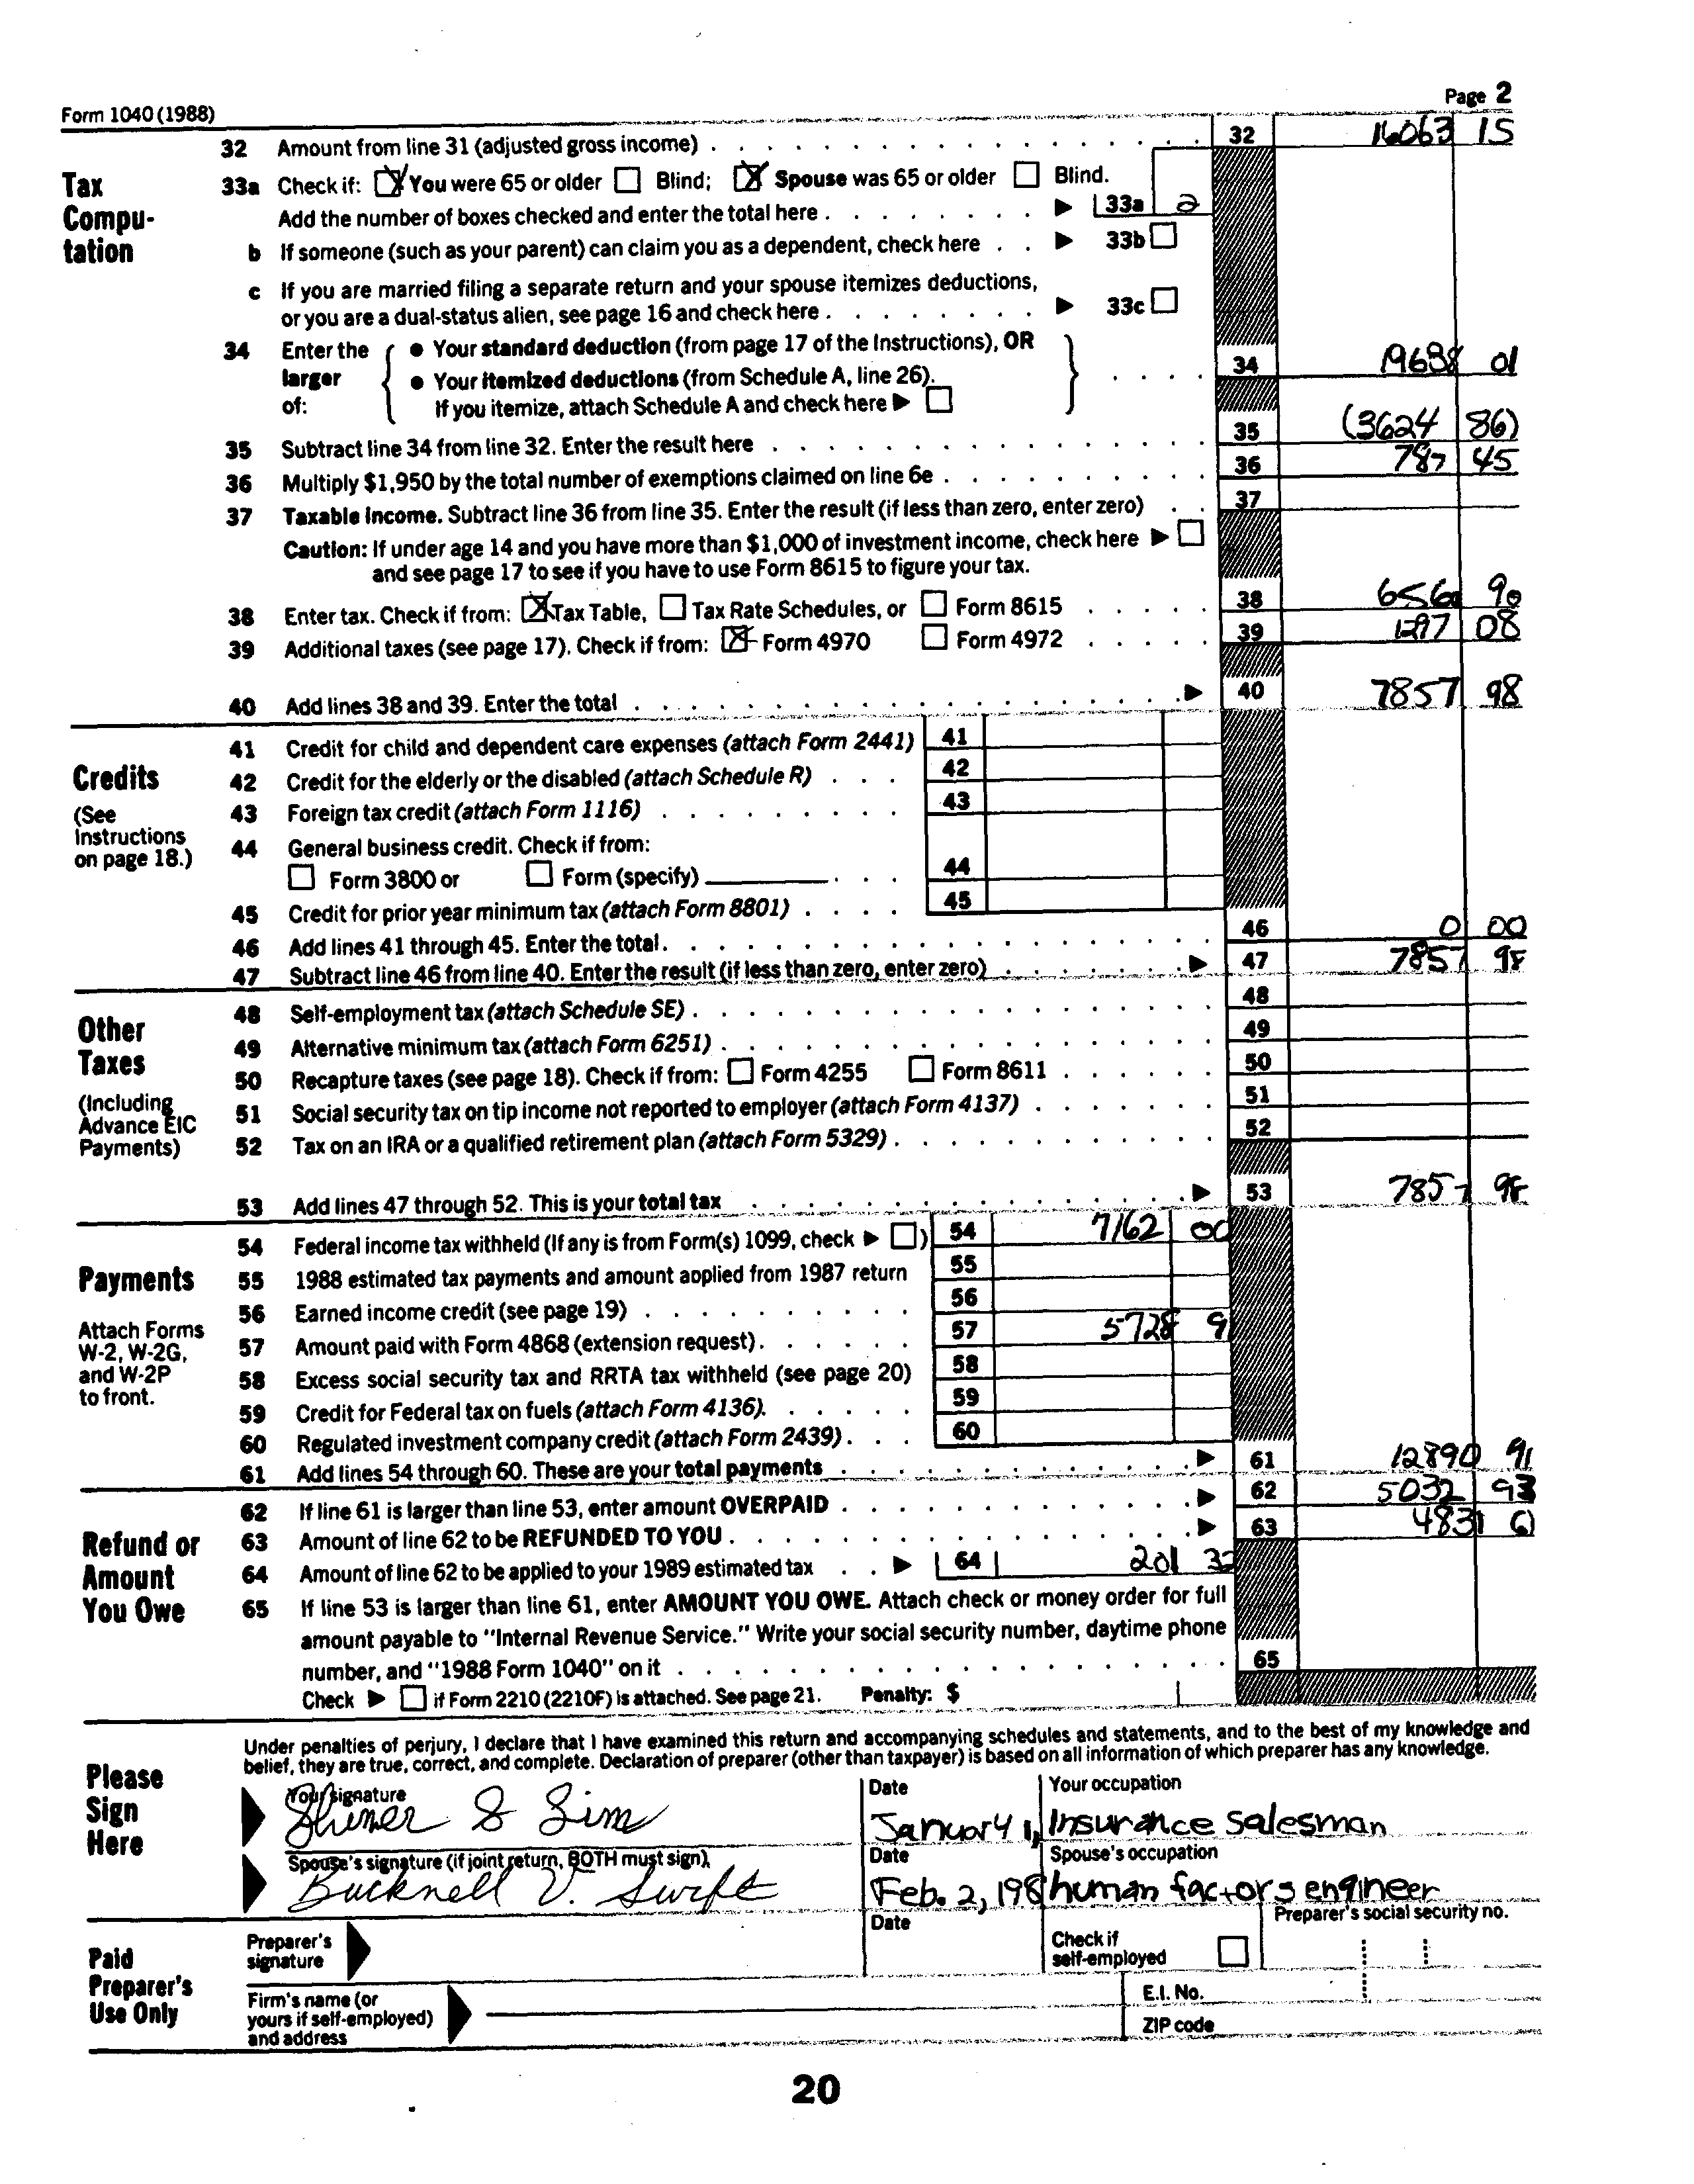 Form 1040 (1988) Page 2
32 Amount from line 31 (adjusted gross income) 32 16063 15
Tax Compu-tation
33a Check if: You were 65 or older Blind; Spouse was 65 or older Blind.
Add the number of boxes checked and enter the total here 33a 2
b If someone (such as your parent) can claim you as a dependent, check here 33b
c If you are married filing a separate return and your spouse itemizes deductions,
or you are a dual-status alien, see page 16 and check here 33c
34 Enter the larger of: • Your standard deduction (from page 17 of the Instructions), OR
• Your itemized deductions (from Schedule A, line 26).
If you itemize, attach Schedule A and check here
34 19688 01
35 Subtract line 34 from line 32. Enter the result here 35 (3624 86)
36 Multiply $1,950 by the total number of exemptions claimed on line 6e 36 787 45
37 Taxable income. Subtract line 36 from line 35. Enter the result (if less than zero, enter zero) 37
Caution: If under age 14 and you have more than $1,000 of investment income, check here
and see page 17 to see if you have to use Form 8615 to figure your tax.
38 Enter tax. Check if from: Tax Table, Tax Rate Schedules, or Form 8615 38 6560 90
39 Additional taxes (see page 17). Check if from: Form 4970 Form 4972 39 1297 08
40 Add lines 38 and 39. Enter the total 40 7857 98
Credits
(See Instructions on page 18.)
41 Credit for child and dependent care expenses (attach Form 2441) 41
42 Credit for the elderly or the disabled (attach Schedule R) 42
43 Foreign tax credit (attach Form 1116) 43
44 General business credit. Check if from:
Form 3800 or Form (specify) 44
45 Credit for prior year minimum tax (attach Form 8801) 45
46 Add lines 41 through 45. Enter the total 46 0 00
47 Subtract line 46 from line 40. Enter the result (if less than zero, enter zero) 47 7857 98
Other Taxes
(Including Advance EIC Payments)
48 Self-employment tax (attach Schedule SE) 48
49 Alternative minimum tax (attach Form 6251) 49
50 Recapture taxes (see page 18). Check if from: Form 4255 Form 8611 50
51 Social security tax on tip income not reported to employer (attach Form 4137) 51
52 Tax on an IRA or a qualified retirement plan (attach Form 5329) 52
53 Add lines 47 through 52. This is your total tax 53 7857 98
Payments
Attach Forms W-2, W-2G, and W-2P to front.
54 Federal income tax withheld (If any is from Form(s) 1099, check ) 54 7162 00
55 1988 estimated tax payments and amount applied from 1987 return 55
56 Earned income credit (see page 19) 56
57 Amount paid with Form 4868 (extension request) 57 5728 9
58 Excess social security tax and RRTA tax withheld (see page 20) 58
59 Credit for Federal tax on fuels (attach Form 4136) 59
60 Regulated investment company credit (attach Form 2439) 60
61 Add lines 54 through 60. These are your total payments 61 12890 91
Refund or Amount You Owe
62 If line 61 is larger than line 53, enter amount OVERPAID 62 5032 93
63 Amount of line 62 to be REFUNDED TO YOU 63 4831 61
64 Amount of line 62 to be applied to your 1989 estimated tax 64 201 32
65 If line 53 is larger than line 61, enter AMOUNT YOU OWE. Attach check or money order for full
amount payable to "Internal Revenue Service." Write your social security number, daytime phone
number, and "1988 Form 1040" on it 65
Check if Form 2210 (2210F) is attached. See page 21. Penalty: $
Please Sign Here
Under penalties of perjury, I declare that I have examined this return and accompanying schedules and statements, and to the best of my knowledge and
belief, they are true, correct, and complete. Declaration of preparer (other than taxpayer) is based on all information of which preparer has any knowledge.
Your signature Date Your occupation
Shimer S Sim January 1, Insurance salesman
Spouse's signature (if joint return, BOTH must sign) Date Spouse's occupation
Bucknell V. Swift Feb. 2, 198 human factors engineer
Paid Preparer's Use Only
Preparer's signature Date Check if self-employed Preparer's social security no.
Firm's name (or yours if self-employed) and address
E.I. No.
ZIP code
20